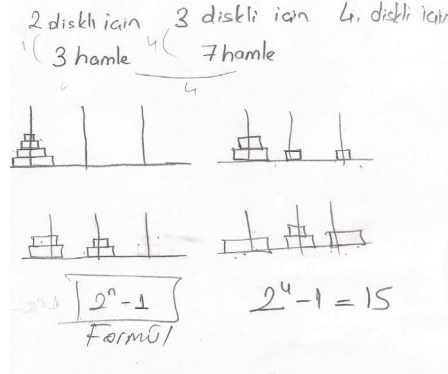 2 diskli için 3 diskli için 4. diskli için
3 hamle 4 7 hamle
4
2ⁿ - 1
Formül
2⁴ - 1 = 15